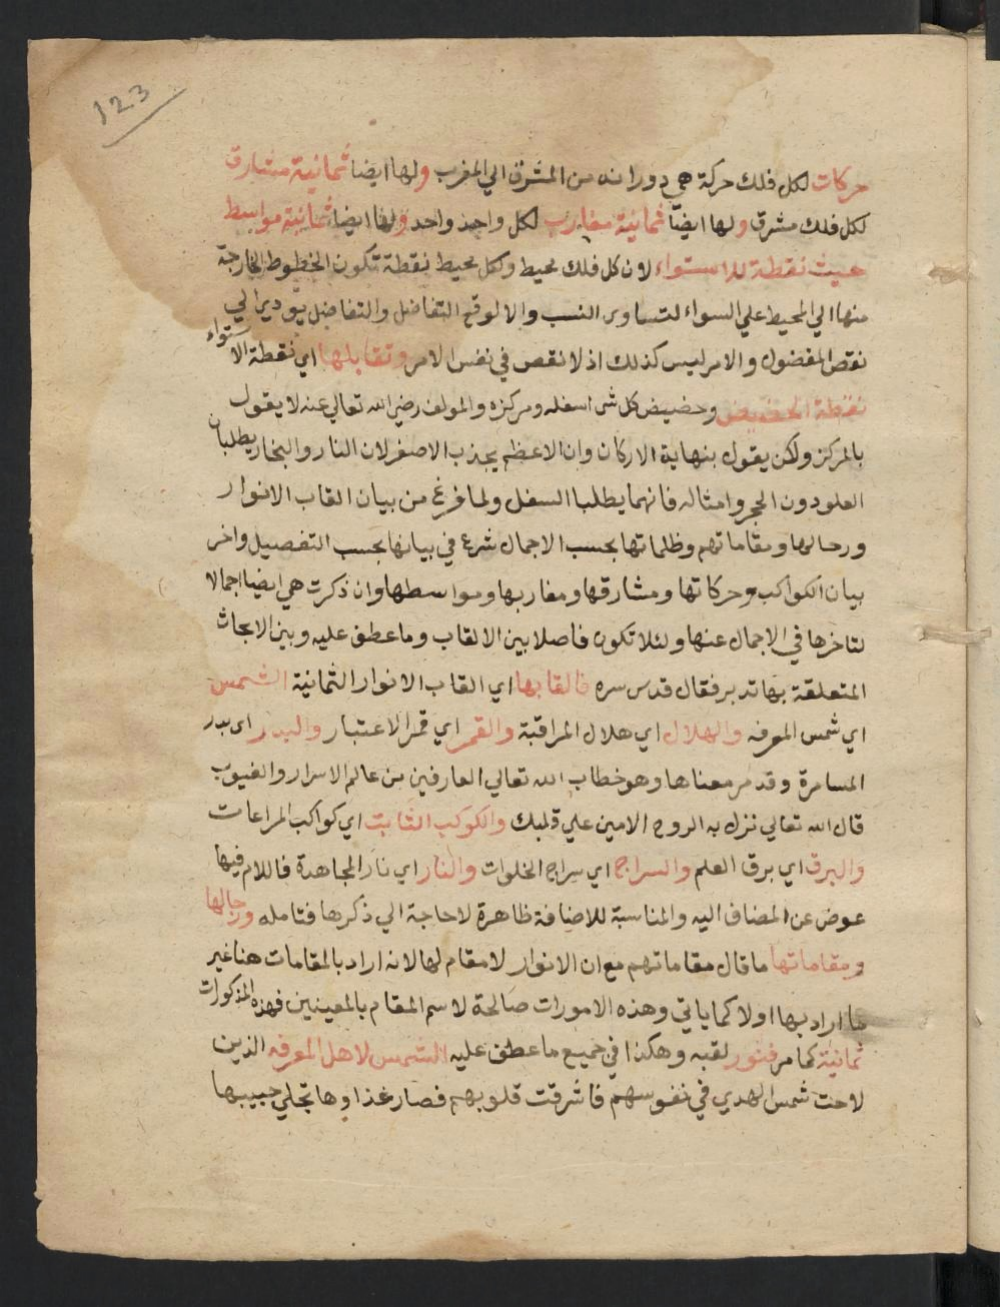 123
حركات لكل فلك حركة هي دورانه من المشرق الي المغرب ولها ايضا ثمانية مشارق
لكل فلك مشرق ولها ايضا ثمانية مغارب لكل واحد واحد ولها ايضا ثمانية مواسط
حيث نقطة للاستواء لان كل فلك محيط وكل محيط نقطة تكون الخطوط الخارجة
منها الي المحيط علي السواء لتساوى النسب والا لوقع التفاضل والتفاضل يودير الي
نقص المفضول والامر ليس كذلك اذ لا نقص في نفس الامر وتقابلها اي نقطة الاستواء
نقطة الحضيض وحضيض كل شى اسفله ومركزه والمولف رضي الله تعالي عنه لا يقول
بالمركز ولكن يقول بنهاية الاركان وان الاعظم يجذب الاصغر لان النار والبخار يطلبان
العلو دون الحجر وامثاله فانهما يطلبا السفل ولما فرغ من بيان القاب الانوار
ورحالها ومقاماتهم وظلماتها بحسب الاجمال شرع في بيانها بحسب التفصيل واخر
بيان الكواكب وحركاتها ومشارقها ومغاربها ومواسطها وان ذكرت هي ايضا اجمالا
لتاخرها في الاجمال عنها ولئلا تكون فاصلا بين الالقاب وما عطف عليه وبين الابحاث
المتعلقة بها تدبر فقال قدس سره فالقابها اي القاب الانوار الثمانية الشمس
اي شمس المعرفه والهلال اي هلال المراقبة والقمر اي قمر الاعتبار والبدر اى بدر
المسامرة وقد مر معناها وهو خطاب الله تعالي العارفين من عالم الاسرار والغيوب
قال الله تعالي نزل به الروح الامين علي قلبك والكوكب الثابت اي كواكب المراعات
والبرق اي برق العلم والسراج اي سراج الخلوات والنار اي نار المجاهدة فاللام فيها
عوض عن المضاف اليه والمناسبة للاضافة ظاهرة لا حاجة الي ذكرها فتامله ورجالها
ومقاماتها ما قال مقاماتهم مع ان الانوار لا مقام لها لانه اراد بالمقامات هنا غير
ما اراد بها اولا كما ياتي وهذه الامورات صالحة لاسم المقام بالمعينين فهذه المذكورات
ثمانية كما مر فنور لقبه وهكذا في جميع ما عطف عليه الشمس لاهل المعرفه الذين
لاحت شمس الهدي في نفوسهم فاشرقت قلوبهم فصار غذاوها تجلي حبيبها